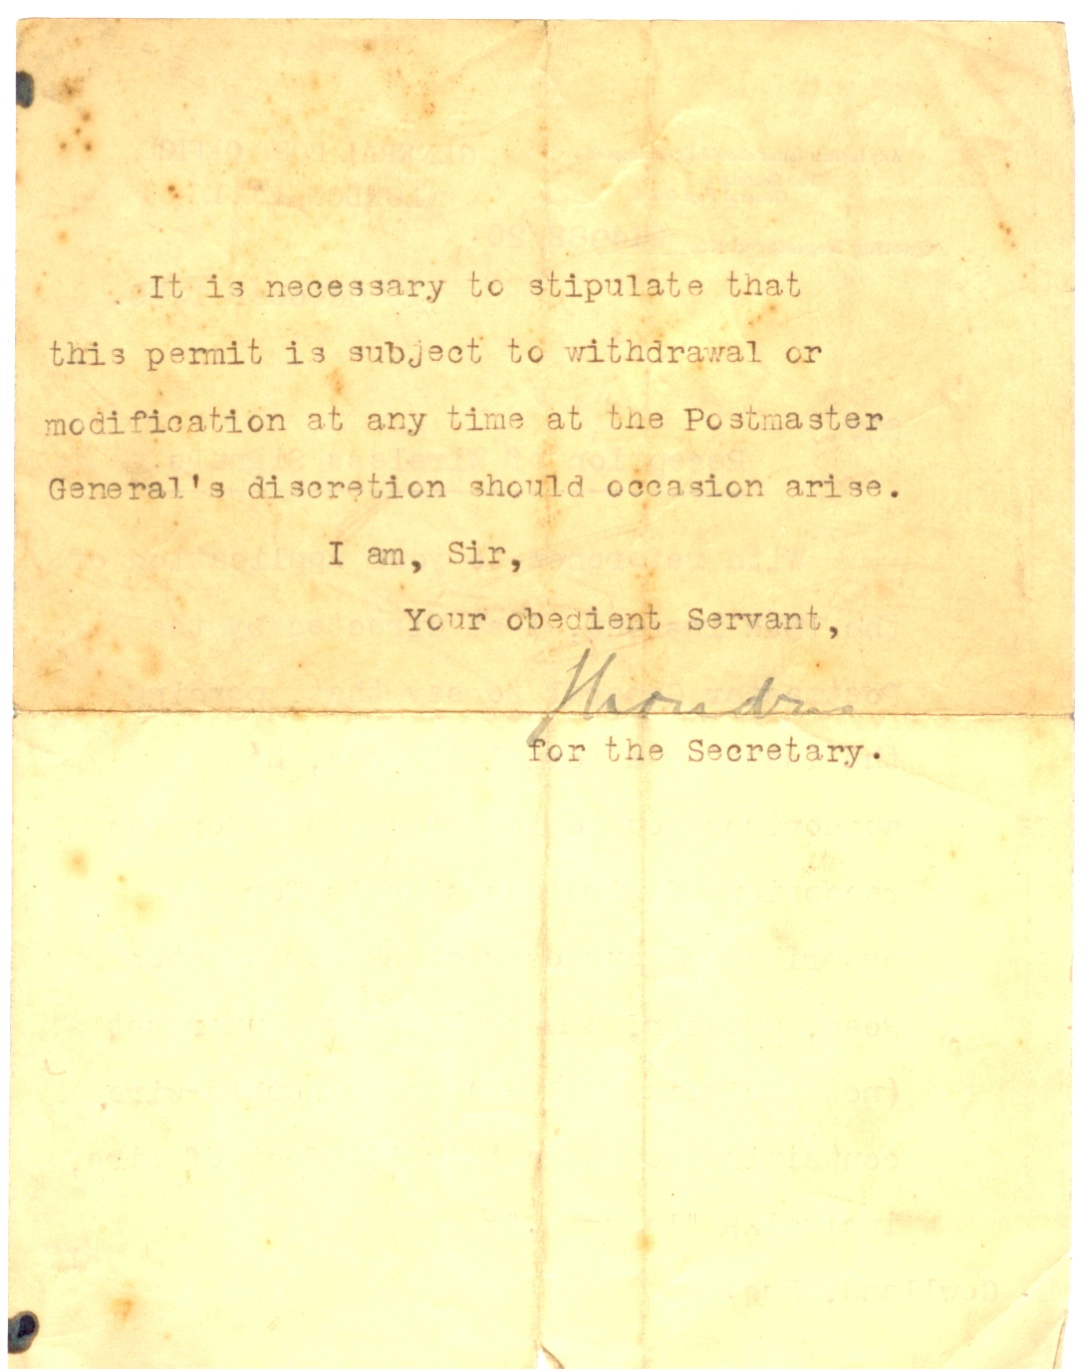 It is necessary to stipulate that
this permit is subject to withdrawal or
modification at any time at the Postmaster
General's discretion should occasion arise.
I am, Sir,
Your obedient Servant,
for the Secretary.